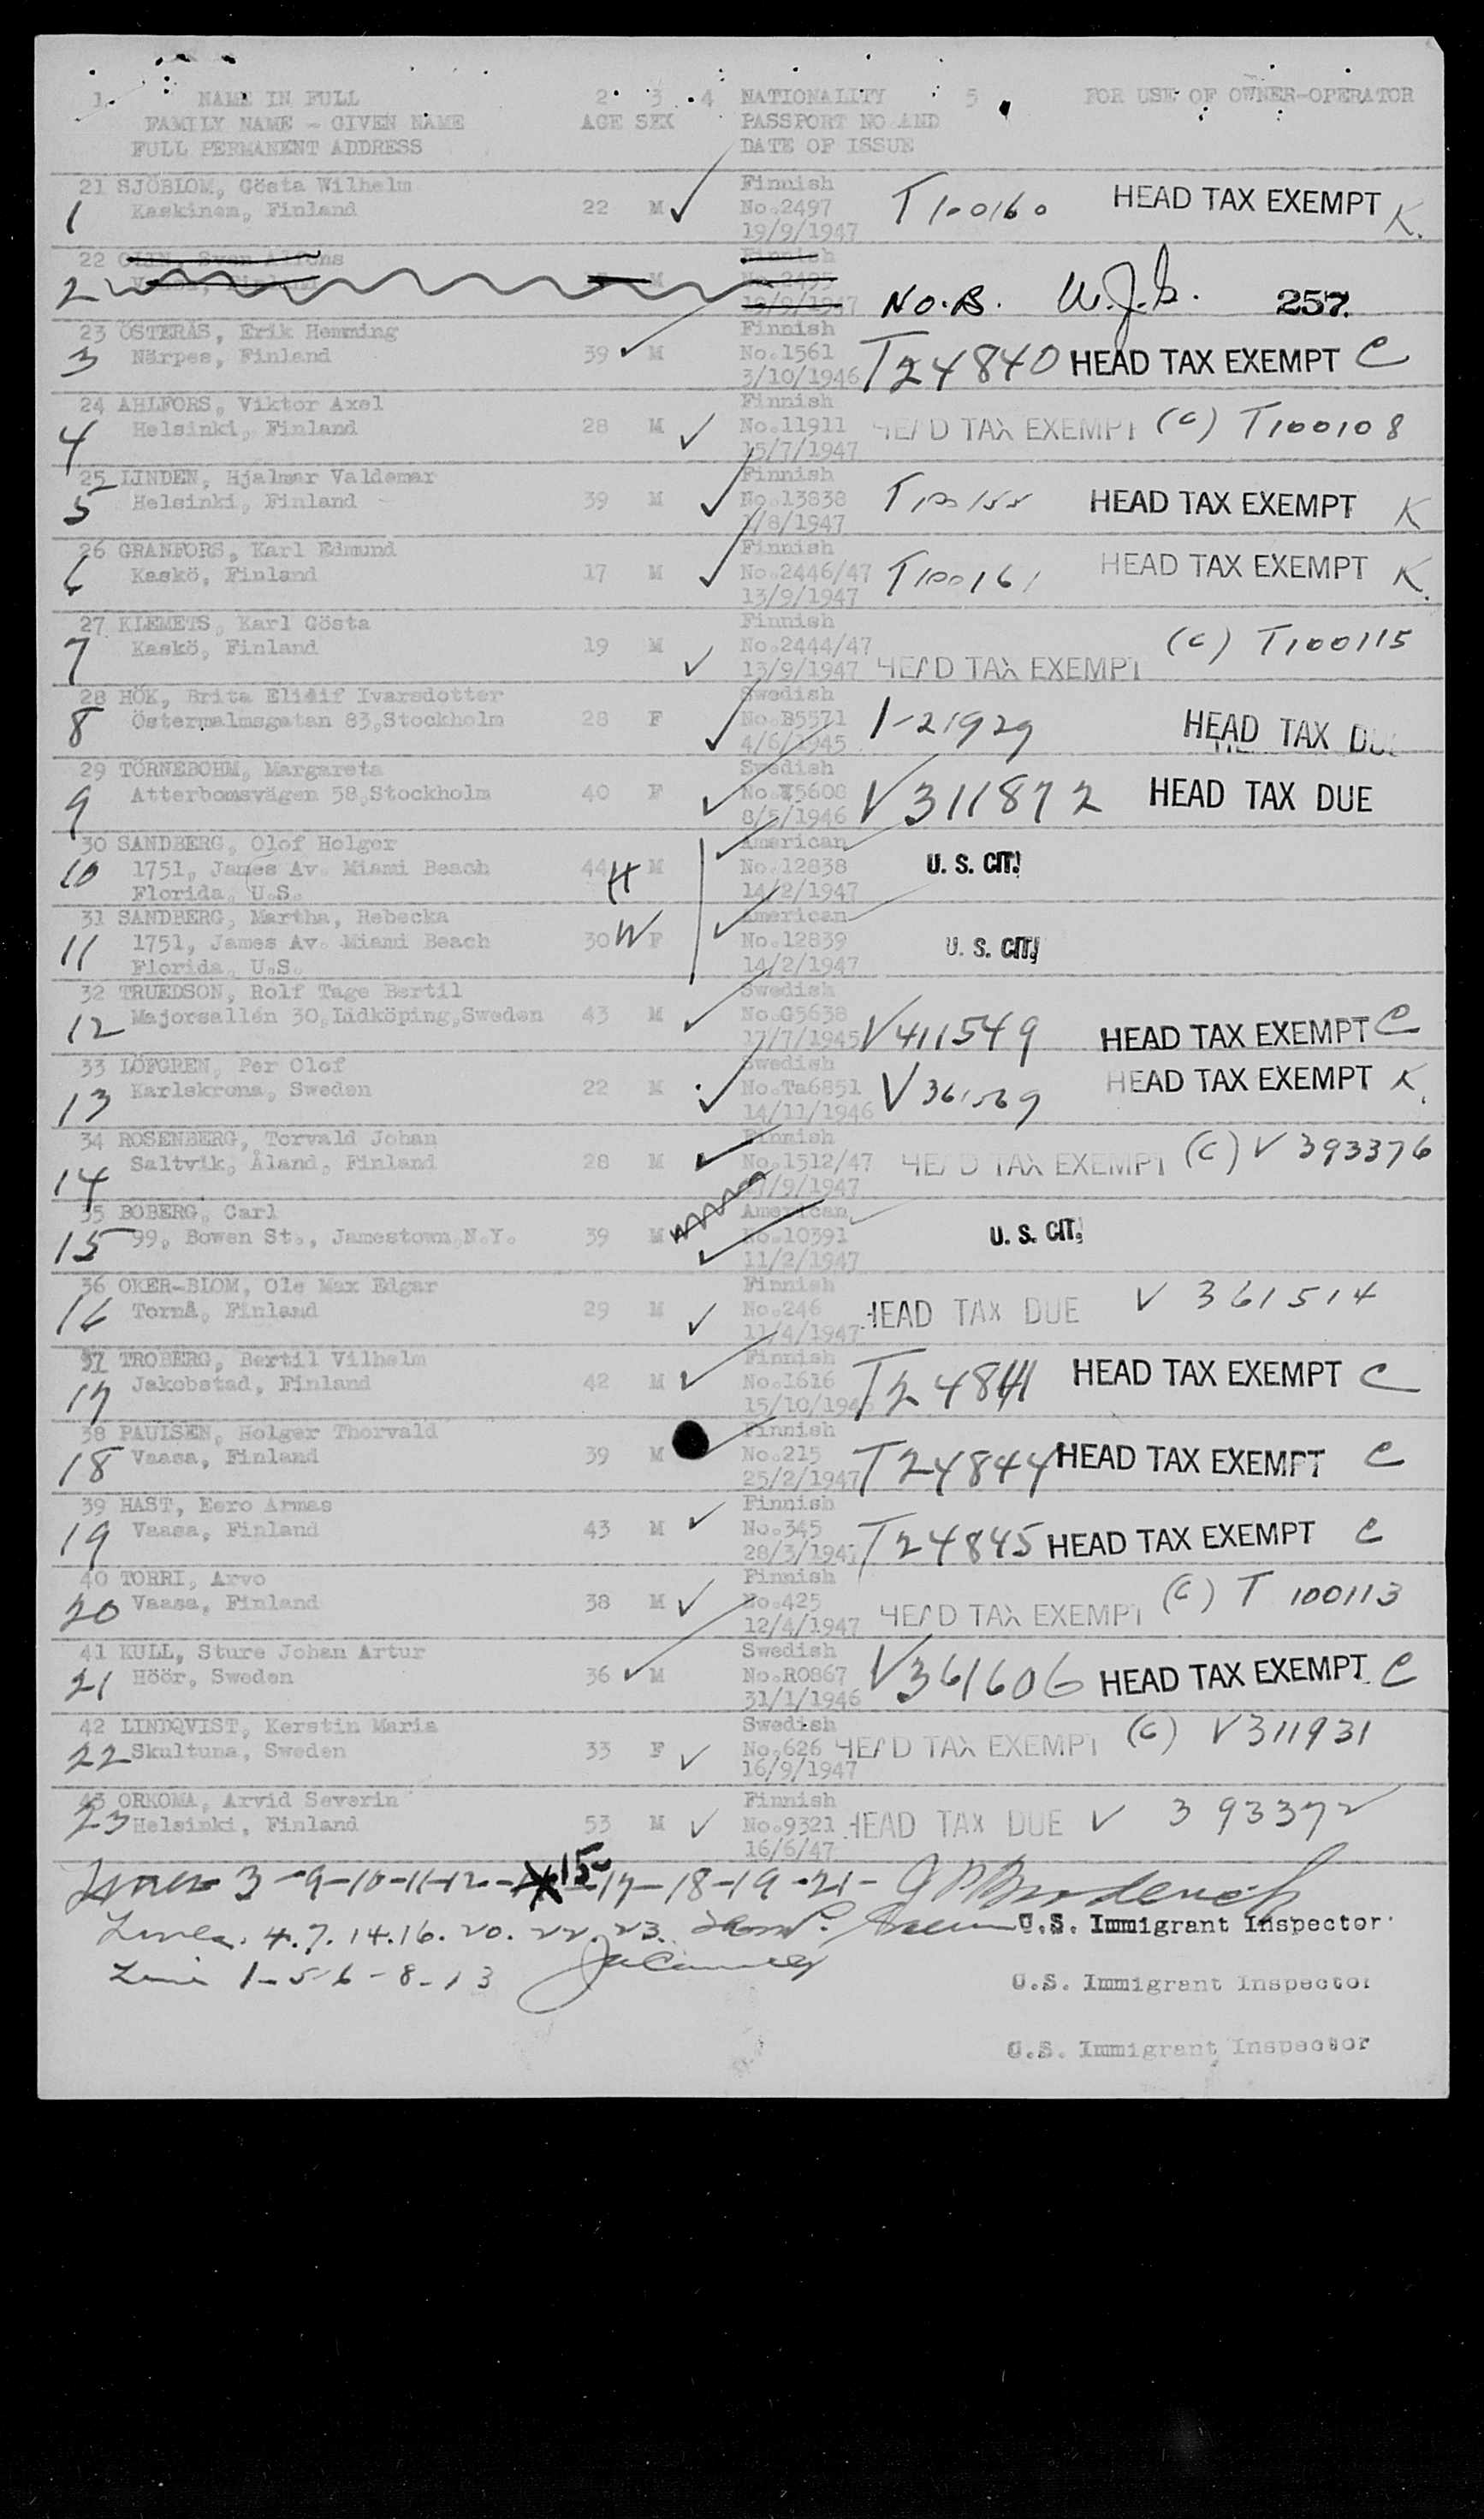 1. NAME IN FULL 2 3 4 NATIONALITY 5 FOR USE OF OWNER-OPERATOR
FAMILY NAME - GIVEN NAME AGE SEX PASSPORT NO AND
FULL PERMANENT ADDRESS DATE OF ISSUE
21 SJÖBLOM, Gösta Wilhelm Finnish HEAD TAX EXEMPT K.
1 Kaskinem, Finland 22 M No.2497 T100160
19/9/1947
22 Sven Finnish
2 M No.2495 NO.B. W.J.G. 257.
19/9/1947
23 ÖSTERÅS, Erik Hemming Finnish
3 Närpes, Finland 39 M No.1561 T24840 HEAD TAX EXEMPT C
3/10/1946
24 AHLFORS, Viktor Axel Finnish
4 Helsinki, Finland 28 M No.11911 HEAD TAX EXEMPT (C) T100108
15/7/1947
25 LINDEN, Hjalmar Valdemar Finnish
5 Helsinki, Finland 39 M No.13838 HEAD TAX EXEMPT K
/8/1947
26 GRANFORS, Karl Edmund Finnish
6 Kaskö, Finland 17 M No.2446/47 T100161 HEAD TAX EXEMPT K.
13/9/1947
27 KLEMETS, Karl Gösta Finnish
7 Kaskö, Finland 19 M No.2444/47 (C) T100115
13/9/1947 HEAD TAX EXEMPT
28 HÖK, Brita Ivarsdotter Swedish
8 Östermalmsgatan 83,Stockholm 28 F No.B5571 1-21929 HEAD TAX DUE
4/6/1945
29 TÖRNEBOHM, Margareta Swedish
9 Atterbomsvägen 58,Stockholm 40 F 5608 V311872 HEAD TAX DUE
8/5/1946
30 SANDBERG, Olof Holger American
10 1751, James Av. Miami Beach 44 H M No.12838 U. S. CIT.
Florida, U.S. 14/2/1947
31 SANDBERG, Martha, Rebecka American
11 1751, James Av. Miami Beach 30 W F No.12839 U. S. CIT.
Florida, U.S. 14/2/1947
32 TRUEDSON, Rolf Tage Bertil Swedish
12 Majorsallén 30,Lidköping,Sweden 43 M No.G5638 V411549 HEAD TAX EXEMPT C
17/7/1945
33 LÖFGREN, Per Olof Swedish
13 Karlskrona, Sweden 22 M No.Ta6851 V361569 HEAD TAX EXEMPT K.
14/11/1946
34 ROSENBERG, Torvald Johan Finnish
14 Saltvik, Åland, Finland 28 M No.1512/47 HEAD TAX EXEMPT (C) V 393376
/9/1947
35 BOBERG, Carl American
15 99, Bowen St., Jamestown,N.Y. 39 M No.10391 U. S. CIT.
11/2/1947
36 OKER-BLOM, Ole Max Edgar Finnish
16 Tornå, Finland 29 M No.246 HEAD TAX DUE V 361514
11/4/1947
37 TROBERG, Bertil Vilhelm Finnish
17 Jakobstad, Finland 42 M No.1616 T24841 HEAD TAX EXEMPT C
15/10/1946
38 PAULSEN, Holger Thorvald Finnish
18 Vaasa, Finland 39 M No.215 T24844 HEAD TAX EXEMPT C
25/2/1947
39 HAST, Eero Armas Finnish
19 Vaasa, Finland 43 M No.345 T24845 HEAD TAX EXEMPT C
28/3/1947
40 TORRI, Arvo Finnish
20 Vaasa, Finland 38 M No.425 HEAD TAX EXEMPT (C) T 100113
12/4/1947
41 KULL, Sture Johan Artur Swedish
21 Höör, Sweden 36 M No.R0867 V361606 HEAD TAX EXEMPT C
31/1/1946
42 LINDQVIST, Kerstin Maria Swedish
22 Skultuna, Sweden 33 F No.626 HEAD TAX EXEMPT (C) V311931
16/9/1947
43 ORKOMA, Arvid Severin Finnish
23 Helsinki, Finland 53 M No.9321 HEAD TAX DUE V 393372
16/6/47
Lines 3-9-10-11-12-15-17-18-19-21-
Lines. 4.7.14.16.20.22.23. U.S. Immigrant Inspector
Line 1-5-6-8-13
U.S. Immigrant Inspector
U.S. Immigrant Inspector